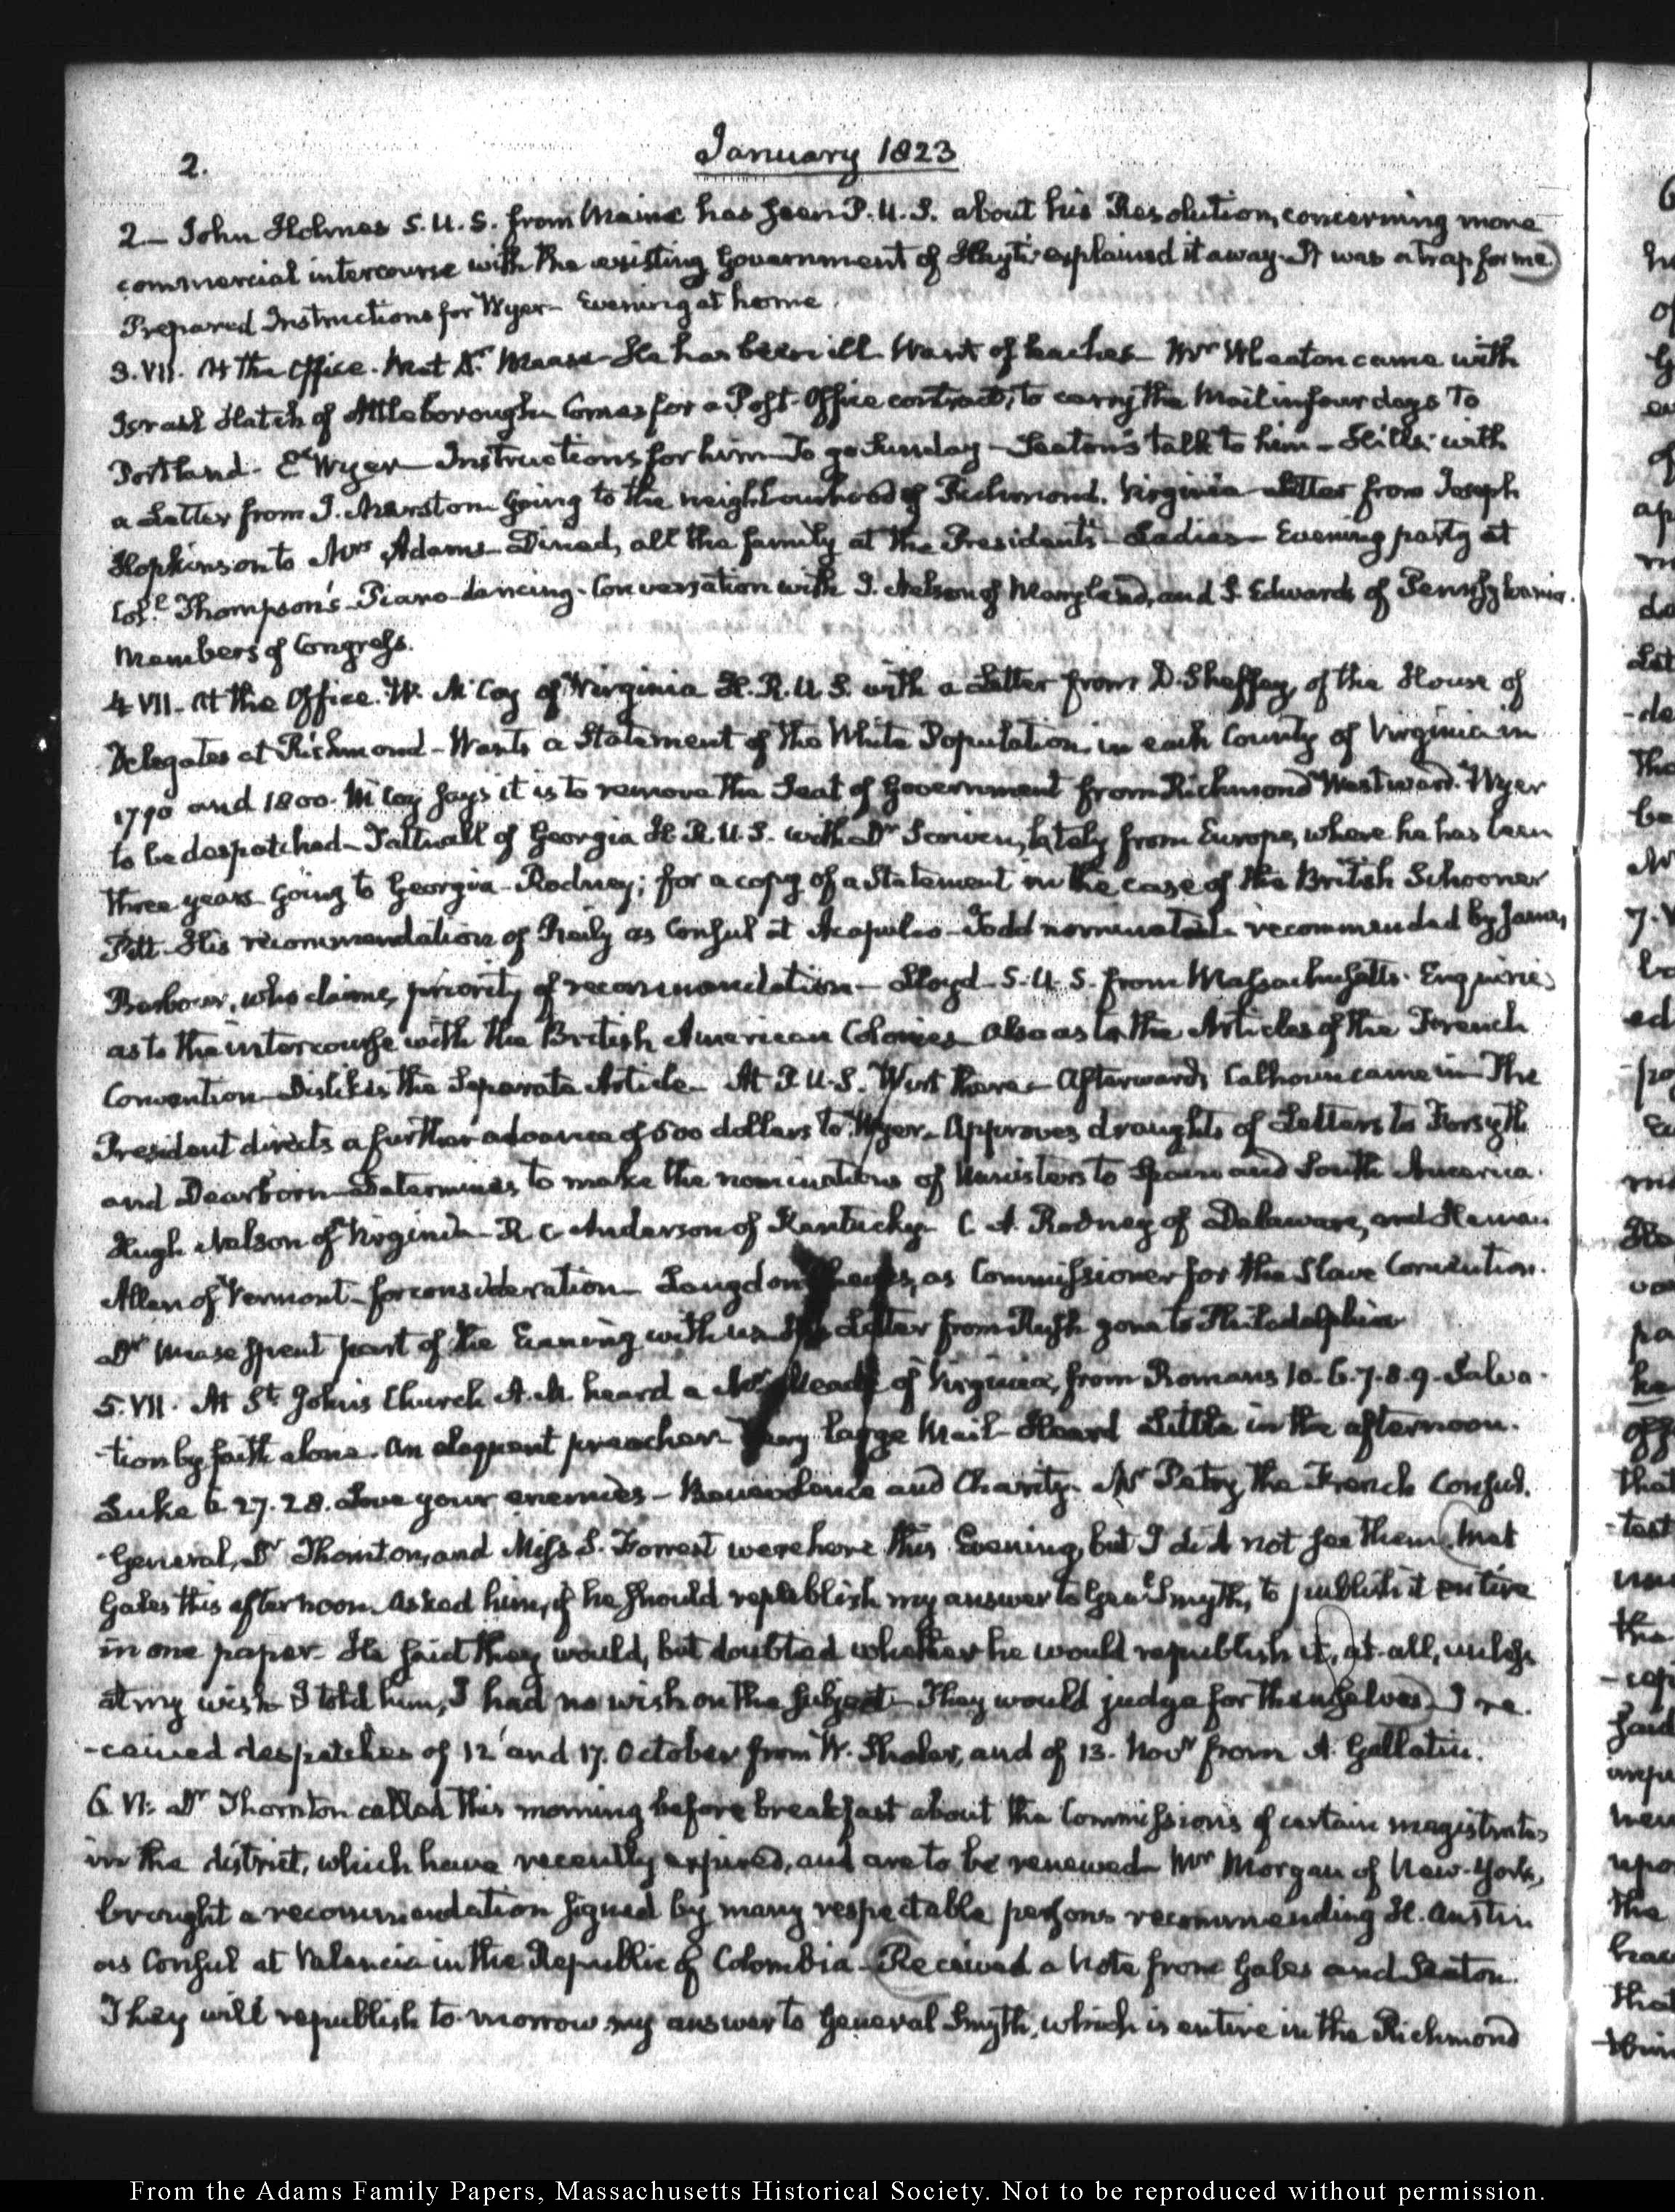 2.
January 1823
2 – John Holmes S.U.S. from Maine has seen P.U.S. about his Resolution, concerning more
commercial intercourse with the existing Government of Hayti explained it away. It was a trap for me
Prepared Instructions for Wyer – Evening at home.
3. VII. At the Office. Met Dr. Mease He has been ill. Want of leaches – Mr. Wheaton came with
Israel Hatch of Attleborough. Comes for a Post-Office contract, to carry the Mail in four days to
Portland. Ed. Wyer – Instructions for him – To go Sunday – Seaton's talk to him – Hills with
a Letter from J. Marston – Going to the neighbourhood of Richmond, Virginia – Letter from Joseph
Hopkinson to Mrs Adams – Dined, all the family at the Presidents – Ladies – Evening party at
Coll. Thompson's – Piano-dancing – Conversation with J. Nelson of Maryland, and S. Edwards of Pennsylvania.
Members of Congress.
4 VII. At the Office. W. McCoy of Virginia H.R.U.S. with a Letter from D. Sheffey, of the House of
Delegates at Richmond – Wants a Statement of the White Population in each County of Virginia in
1790 and 1800. McCoy says it is to remove the Seat of Government from Richmond Westward. Wyer
to be despatched – Tattnall of Georgia H.R.U.S. with Dr Scriven, lately from Europe, where he has been
three years going to Georgia – Rodney; for a copy of a Statement in the case of the British Schooner
Pitt – His recommendation of Reily as Consul at Acapulco – Todd nominated – recommended by James
Barbour, who claims priority of recommendation – Lloyd – S.U.S. from Massachusetts. Enquiries
as to the intercourse with the British American Colonies – also as to the Articles of the French
Convention – Dislikes the Separate Article – At P.U.S. Wirt there – Afterwards Calhoun came in – The
President directs a further advance of 500 dollars to Wyer – Approves draughts of Letters to Forsyth
and Dearborn – Determines to make the nominations of Ministers to Spain and South America.
Hugh Nelson of Virginia – R C Anderson of Kentucky – C. A. Rodney of Delaware, and Heman
Allen of Vermont – for consideration – Langdon Cheves, as Commissioner for the Slave Convention.
Dr Mease spent part of the Evening with us – His Letter from Rush gone to Philadelphia
5. VII. At St. John's Church A.M. heard a Mr Meade of Virginia, from Romans 10. 6. 7. 8. 9. Salva-
-tion by faith alone. An eloquent preacher – Very large Mail – Heard Little in the afternoon.
Luke 6. 27. 28. Love your enemies – Benevolence and Charity. Mr Petry the French Consul.
-General, Dr Thornton, and Miss S. Forrest were here this Evening, but I did not see them. Met
Gales this afternoon. Asked him, if he should republish my answer to Genl. Smyth, to publish it entire
in one paper. He said they would, but doubted whether he would republish it, at all, unless
at my wish – I told him, I had no wish on the subject – They would judge for themselves. I re-
-ceived despatches of 12 and 17. October from W. Shaler, and of 13. Novr from A. Gallatin.
6. VI: Dr Thornton called this morning before breakfast about the Commissions of certain magistrates
in the district, which have recently expired, and are to be renewed – Mr Morgan of New-York,
brought a recommendation signed by many respectable persons recommending H. Austin
as Consul at Valencia in the Republic of Colombia – Received a Note from Gales and Seaton.
They will republish to-morrow my answer to General Smyth, which is entire in the Richmond
From the Adams Family Papers, Massachusetts Historical Society. Not to be reproduced without permission.